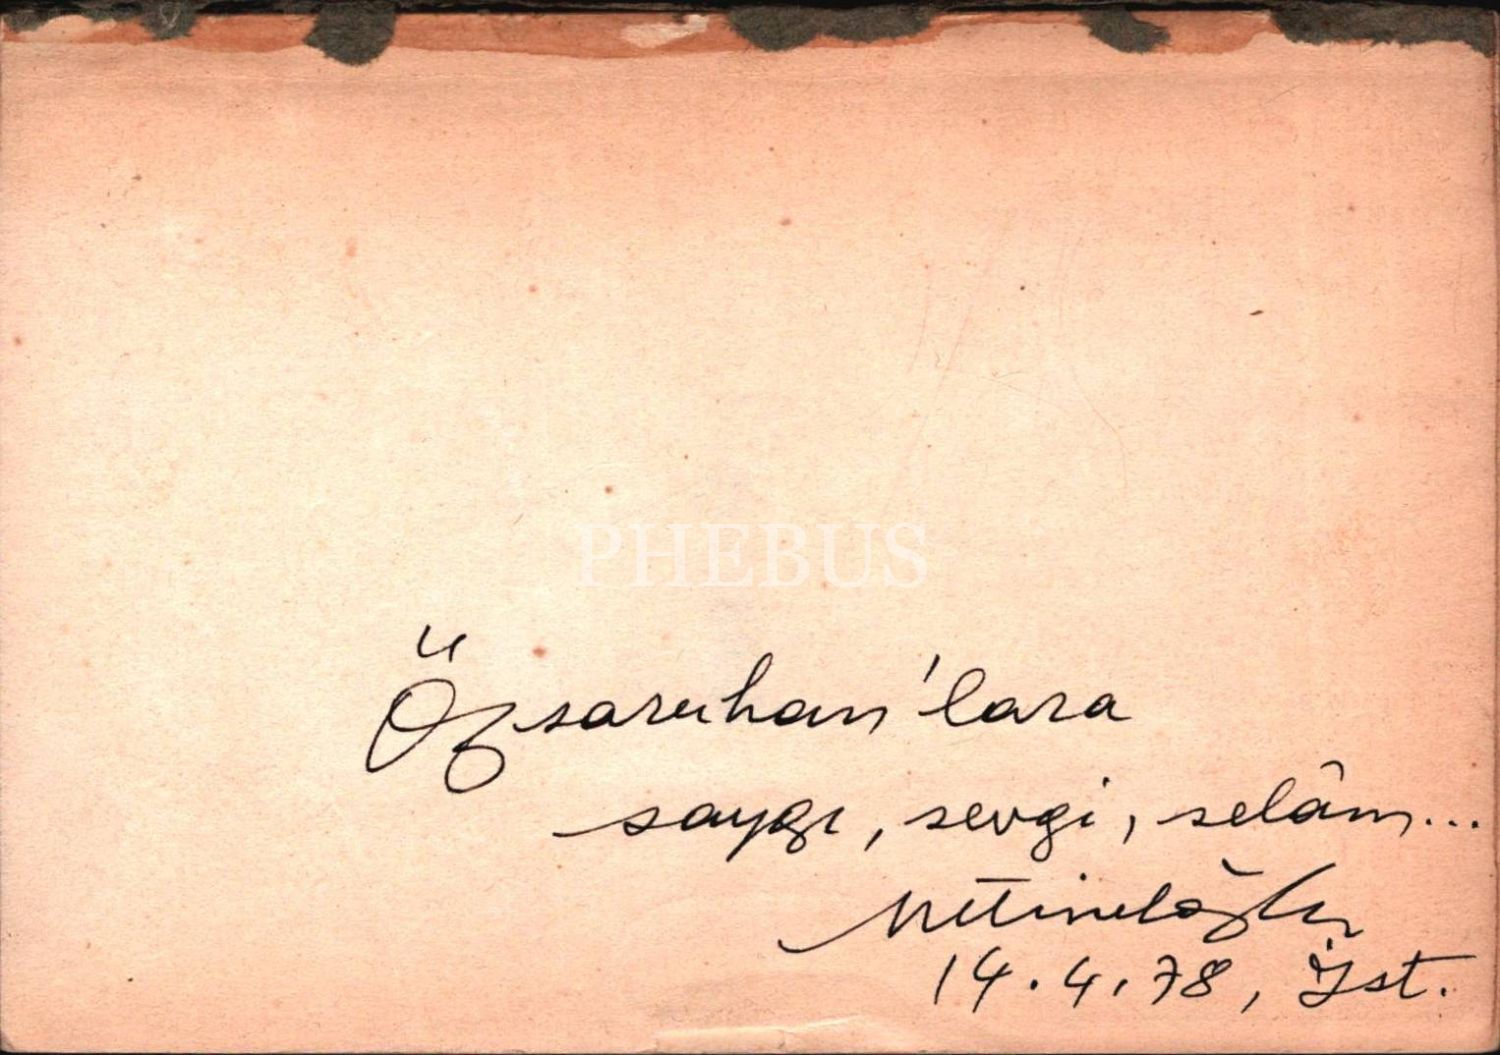 PHEBUS
Özsaruhan'lara
saygı, sevgi, selâm...
Metineloğlu
14.4.78, İst.